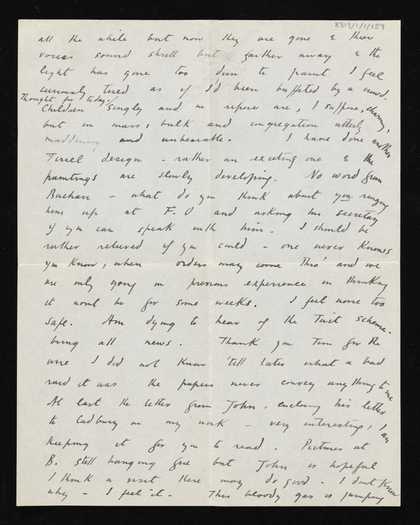 all the while but now they are gone & their
voices sound shrill but farther away & the
light has gone too dim to paint I feel
curiously tired as if I'd been buffeted by a crowd.
Thought for today.
Children singly and in repose are, I suppose, charming,
but in mass, bulk and congregation utterly
maddening and unbearable. I have done another
Tirril design - rather an exciting one & the
paintings are slowly developing. No word from
Buchan - what do you think about you ringing
him up at F.O and asking his secretary
if you can speak with him. I should be
rather relieved if you could - one never knows
you know, when orders may come tho' and we
are only going on previous experience in thinking
it wont be for some weeks. I feel none too
safe. Am dying to hear of the Tirril scheme.
bring all news. Thank you Tim for the
wire I did not know 'till later what a bad
raid it was the papers never convey anything to me
At last the letter from John, enclosing his letter
to Cadbury on my work - very interesting, I am
keeping it for you to read. Pictures at
B. still hanging fire but John is hopeful
I think a visit there may do good - I dont know
why - I feel it. This bloody gas is jumping